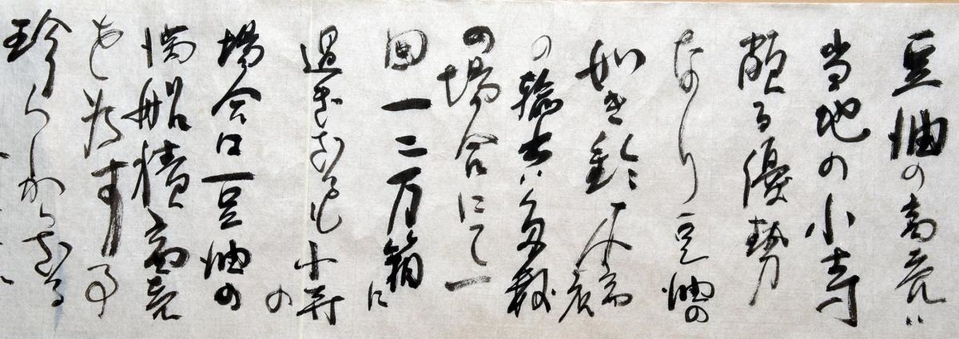 豆油の商売ハ
当地の小寺
頗る優勢
なり豆油の
如き鈴木商店
の輸出ハ多数
の場合にて一
回一二万箱に
過ぎざるも小寺の
場合ハ豆油の
満船積商売
を為す事
珍らしからざる